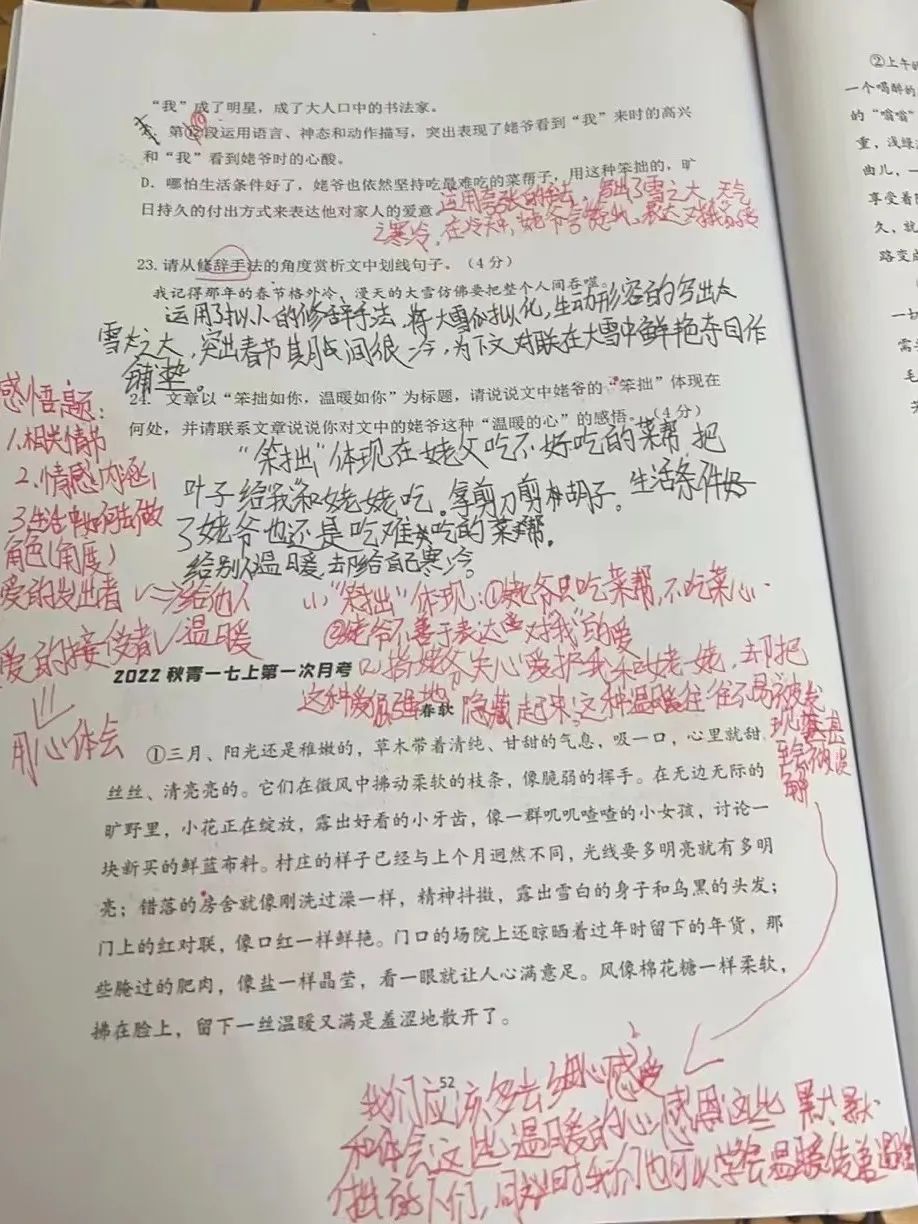 “我”成了明星，成了大人口中的书法家。
第⑫段运用语言、神态和动作描写，突出表现了姥爷看到“我”来时的高兴
⑩
和“我”看到姥爷时的心酸。
D．哪怕生活条件好了，姥爷也依然坚持吃最难吃的菜帮子，用这种笨拙的，旷
日持久的付出方式来表达他对家人的爱意
运用夸张的手法，写出了雪之大，天气
之寒冷，在冷天中，姥爷
23. 请从修辞手法的角度赏析文中划线句子。（4分）
我记得那年的春节格外冷，漫天的大雪仿佛要把整个人间吞噬。
运用了拟人的修辞手法，将大雪拟人化，生动形容的写出大
雪之大，突出春节期间很冷，为下文对联在大雪中鲜艳夺目作
铺垫。
24. 文章以“笨拙如你，温暖如你”为标题，请说说文中姥爷的“笨拙”体现在
何处，并请联系文章说说你对文中的姥爷这种“温暖的心”的感悟。（4分）
“笨拙”体现在姥爷吃不好吃的菜帮 把
叶子给“我”和姥姥吃。拿剪刀剪胡子。生活条件好
了姥爷也还是吃难吃的菜帮。
给别人温暖 却给自己寒冷。
感悟题：
1.相关情节
2.情感内涵
3.生活中如何去做
角色(角度)
爱的发出者 ✓=>给他人
爱的接受者✓ 温暖
⇓
用心体会
(1)“笨拙”体现：①姥爷只吃菜帮，不吃菜心
②姥爷不善于表达对“我”的爱
(2)指姥爷关心爱护我和姥姥，却把
这种爱隐藏起来，这种温暖往往不易被发
现，甚
至会被误
解
2022秋青一七上第一次月考
春软
①三月、阳光还是稚嫩的，草木带着清纯、甘甜的气息，吸一口，心里就甜
丝丝、清亮亮的。它们在微风中拂动柔软的枝条，像脆弱的挥手。在无边无际的
旷野里，小花正在绽放，露出好看的小牙齿，像一群叽叽喳喳的小女孩，讨论一
块新买的鲜蓝布料。村庄的样子已经与上个月迥然不同，光线要多明亮就有多明
亮；错落的房舍就像刚洗过澡一样，精神抖擞，露出雪白的身子和乌黑的头发；
门上的红对联，像口红一样鲜艳。门口的场院上还晾晒着过年时留下的年货，那
些腌过的肥肉，像盐一样晶莹，看一眼就让人心满意足。风像棉花糖一样柔软，
拂在脸上，留下一丝温暖又满是羞涩地散开了。
52
我们应该多去细心感受
和体会这些温暖的心，感恩这些 默默
付出的人们，同时我们也可以学会温暖传递
②上午的
一个喝醉的
的“嗡嗡”
重，浅绿
曲儿，一
享受着
久，就
路变成
一切
需
毛
天